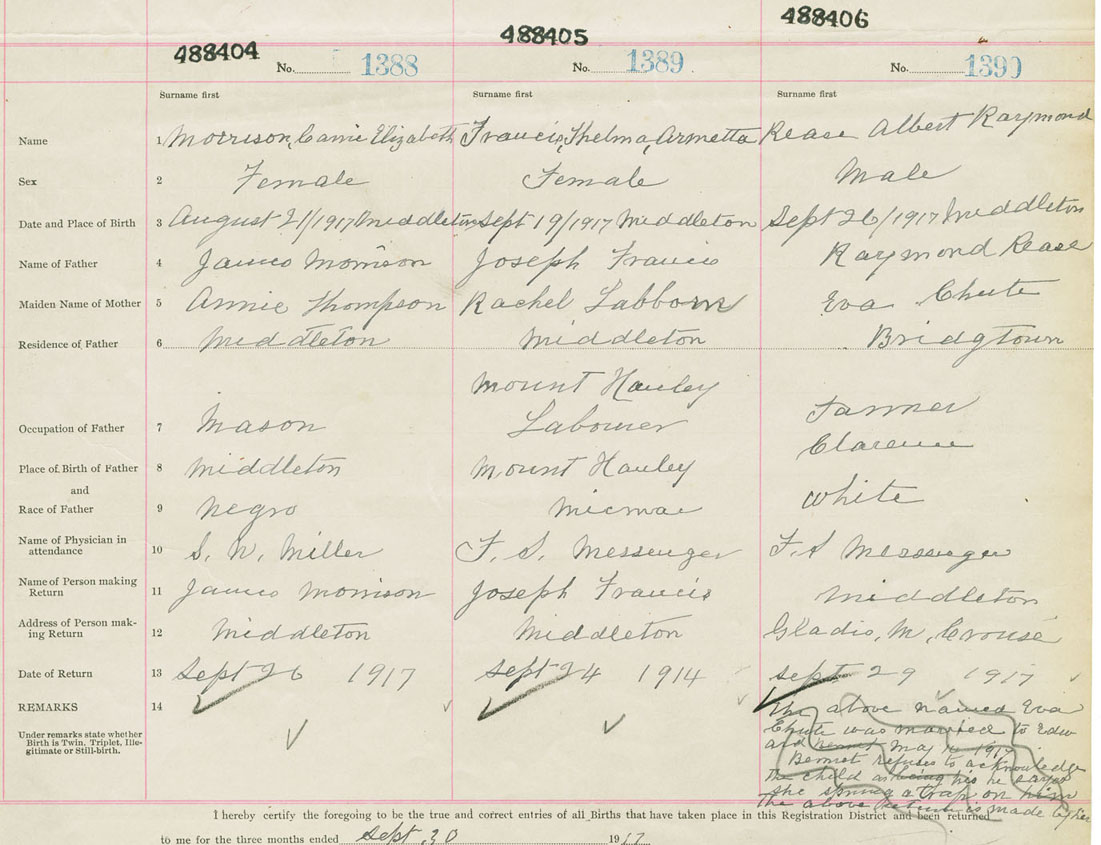 488404 488405 488406
No. 1388 No. 1389 No. 1390
Surname first Surname first Surname first
Name 1 Morrison, Carrie Elizabeth Francis, Thelma, Armetta Rease Albert Raymond
Sex 2 Female Female Male
Date and Place of Birth 3 August 21/1917 Middleton Sept 19/1917 Middleton Sept 26/1917 Middleton
Name of Father 4 James Morrison Joseph Francis Raymond Rease
Maiden Name of Mother 5 Annie Thompson Rachel Labborn Eva Chute
Residence of Father 6 Middleton Middleton Bridgtown
Mount Hanley
Occupation of Father 7 Mason Labourer Farmer
Place of Birth of Father 8 Middleton Mount Hanley Clarence
and
Race of Father 9 Negro Micmac White
Name of Physician in
attendance 10 S. N. Miller F. S. Messenger F. S Messenger
Name of Person making
Return 11 James Morrison Joseph Francis Middleton
Address of Person mak-
ing Return 12 Middleton Middleton Gladis, M, Crouse
Date of Return 13 Sept 26 1917 Sept 24 1914 Sept 29 1917
REMARKS 14 The above named Eva
Under remarks state whether
Birth is Twin, Triplet, Ille-
gitimate or Still-birth.
Chute was married to Edw
ard Bennet May 14 1917
Bennet refuses to acknowledge
the child as being his he says
she sprung a trap on him
the above return is made by her
I hereby certify the foregoing to be the true and correct entries of all Births that have taken place in this Registration District and been returned
to me for the three months ended Sept, 30 1917